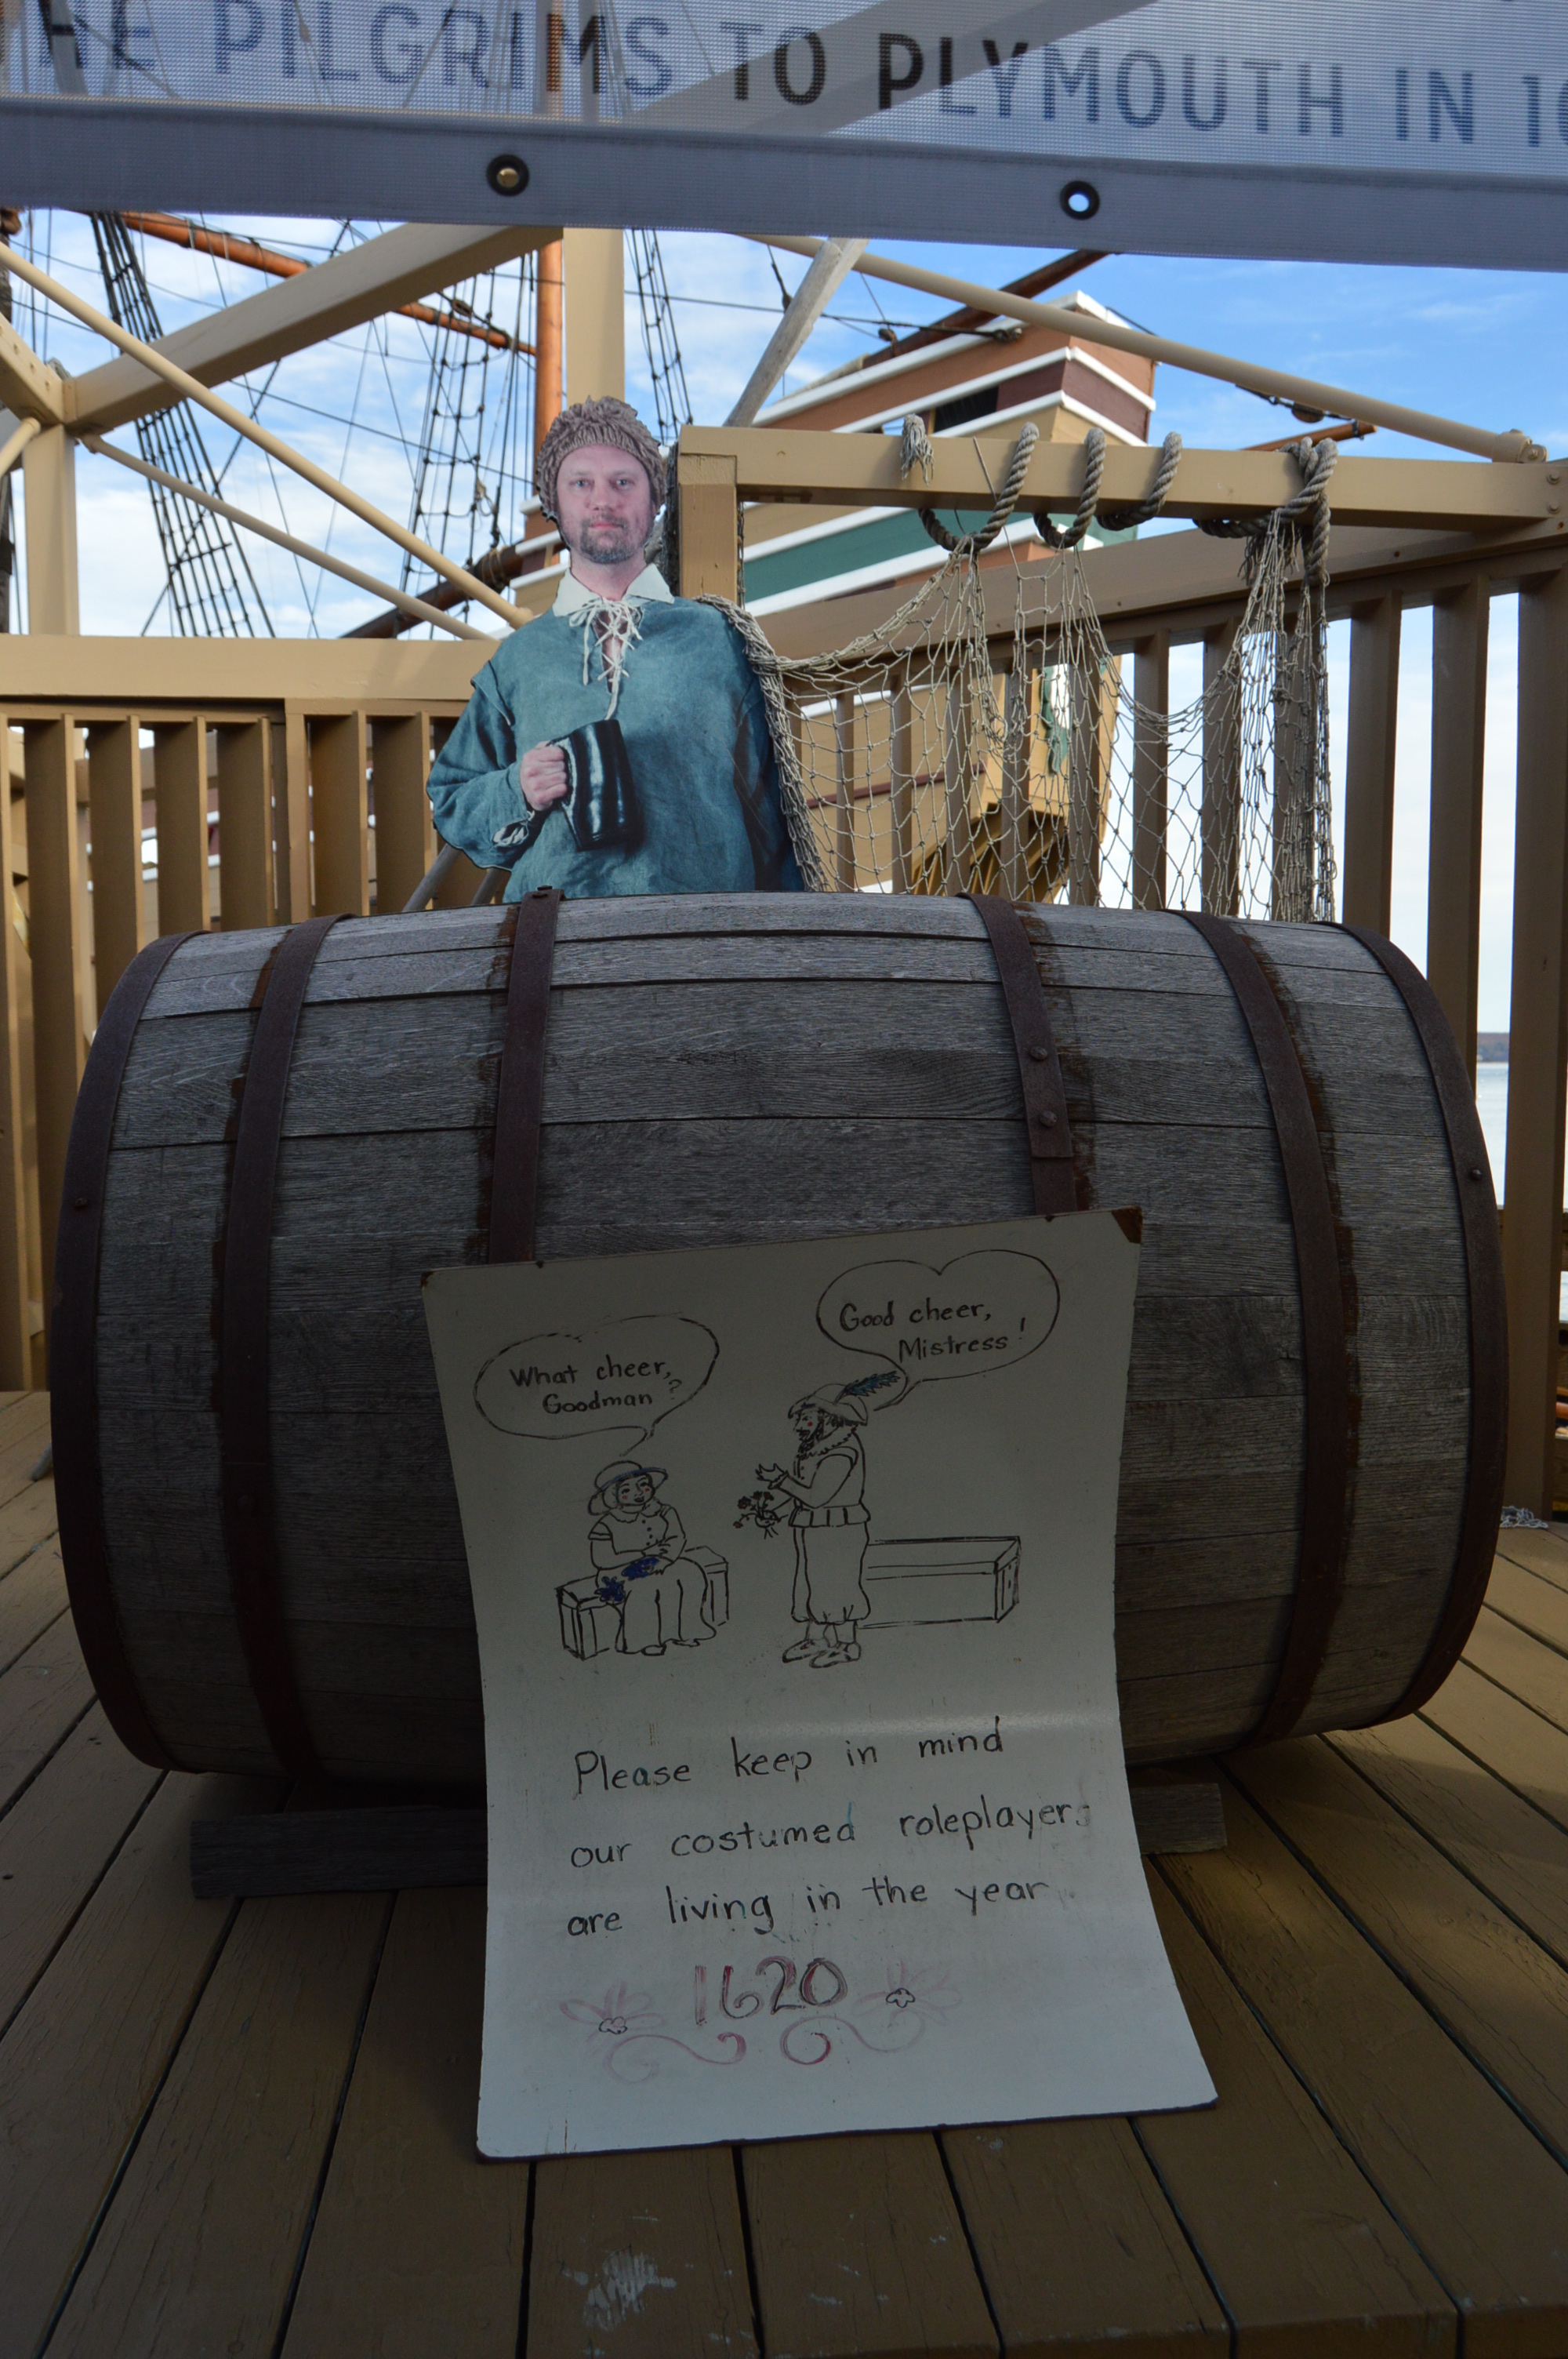 HE PILGRIMS TO PLYMOUTH IN 16
What cheer,
Goodman?
Good cheer,
Mistress!
Please keep in mind
our costumed roleplayers
are living in the year
1620